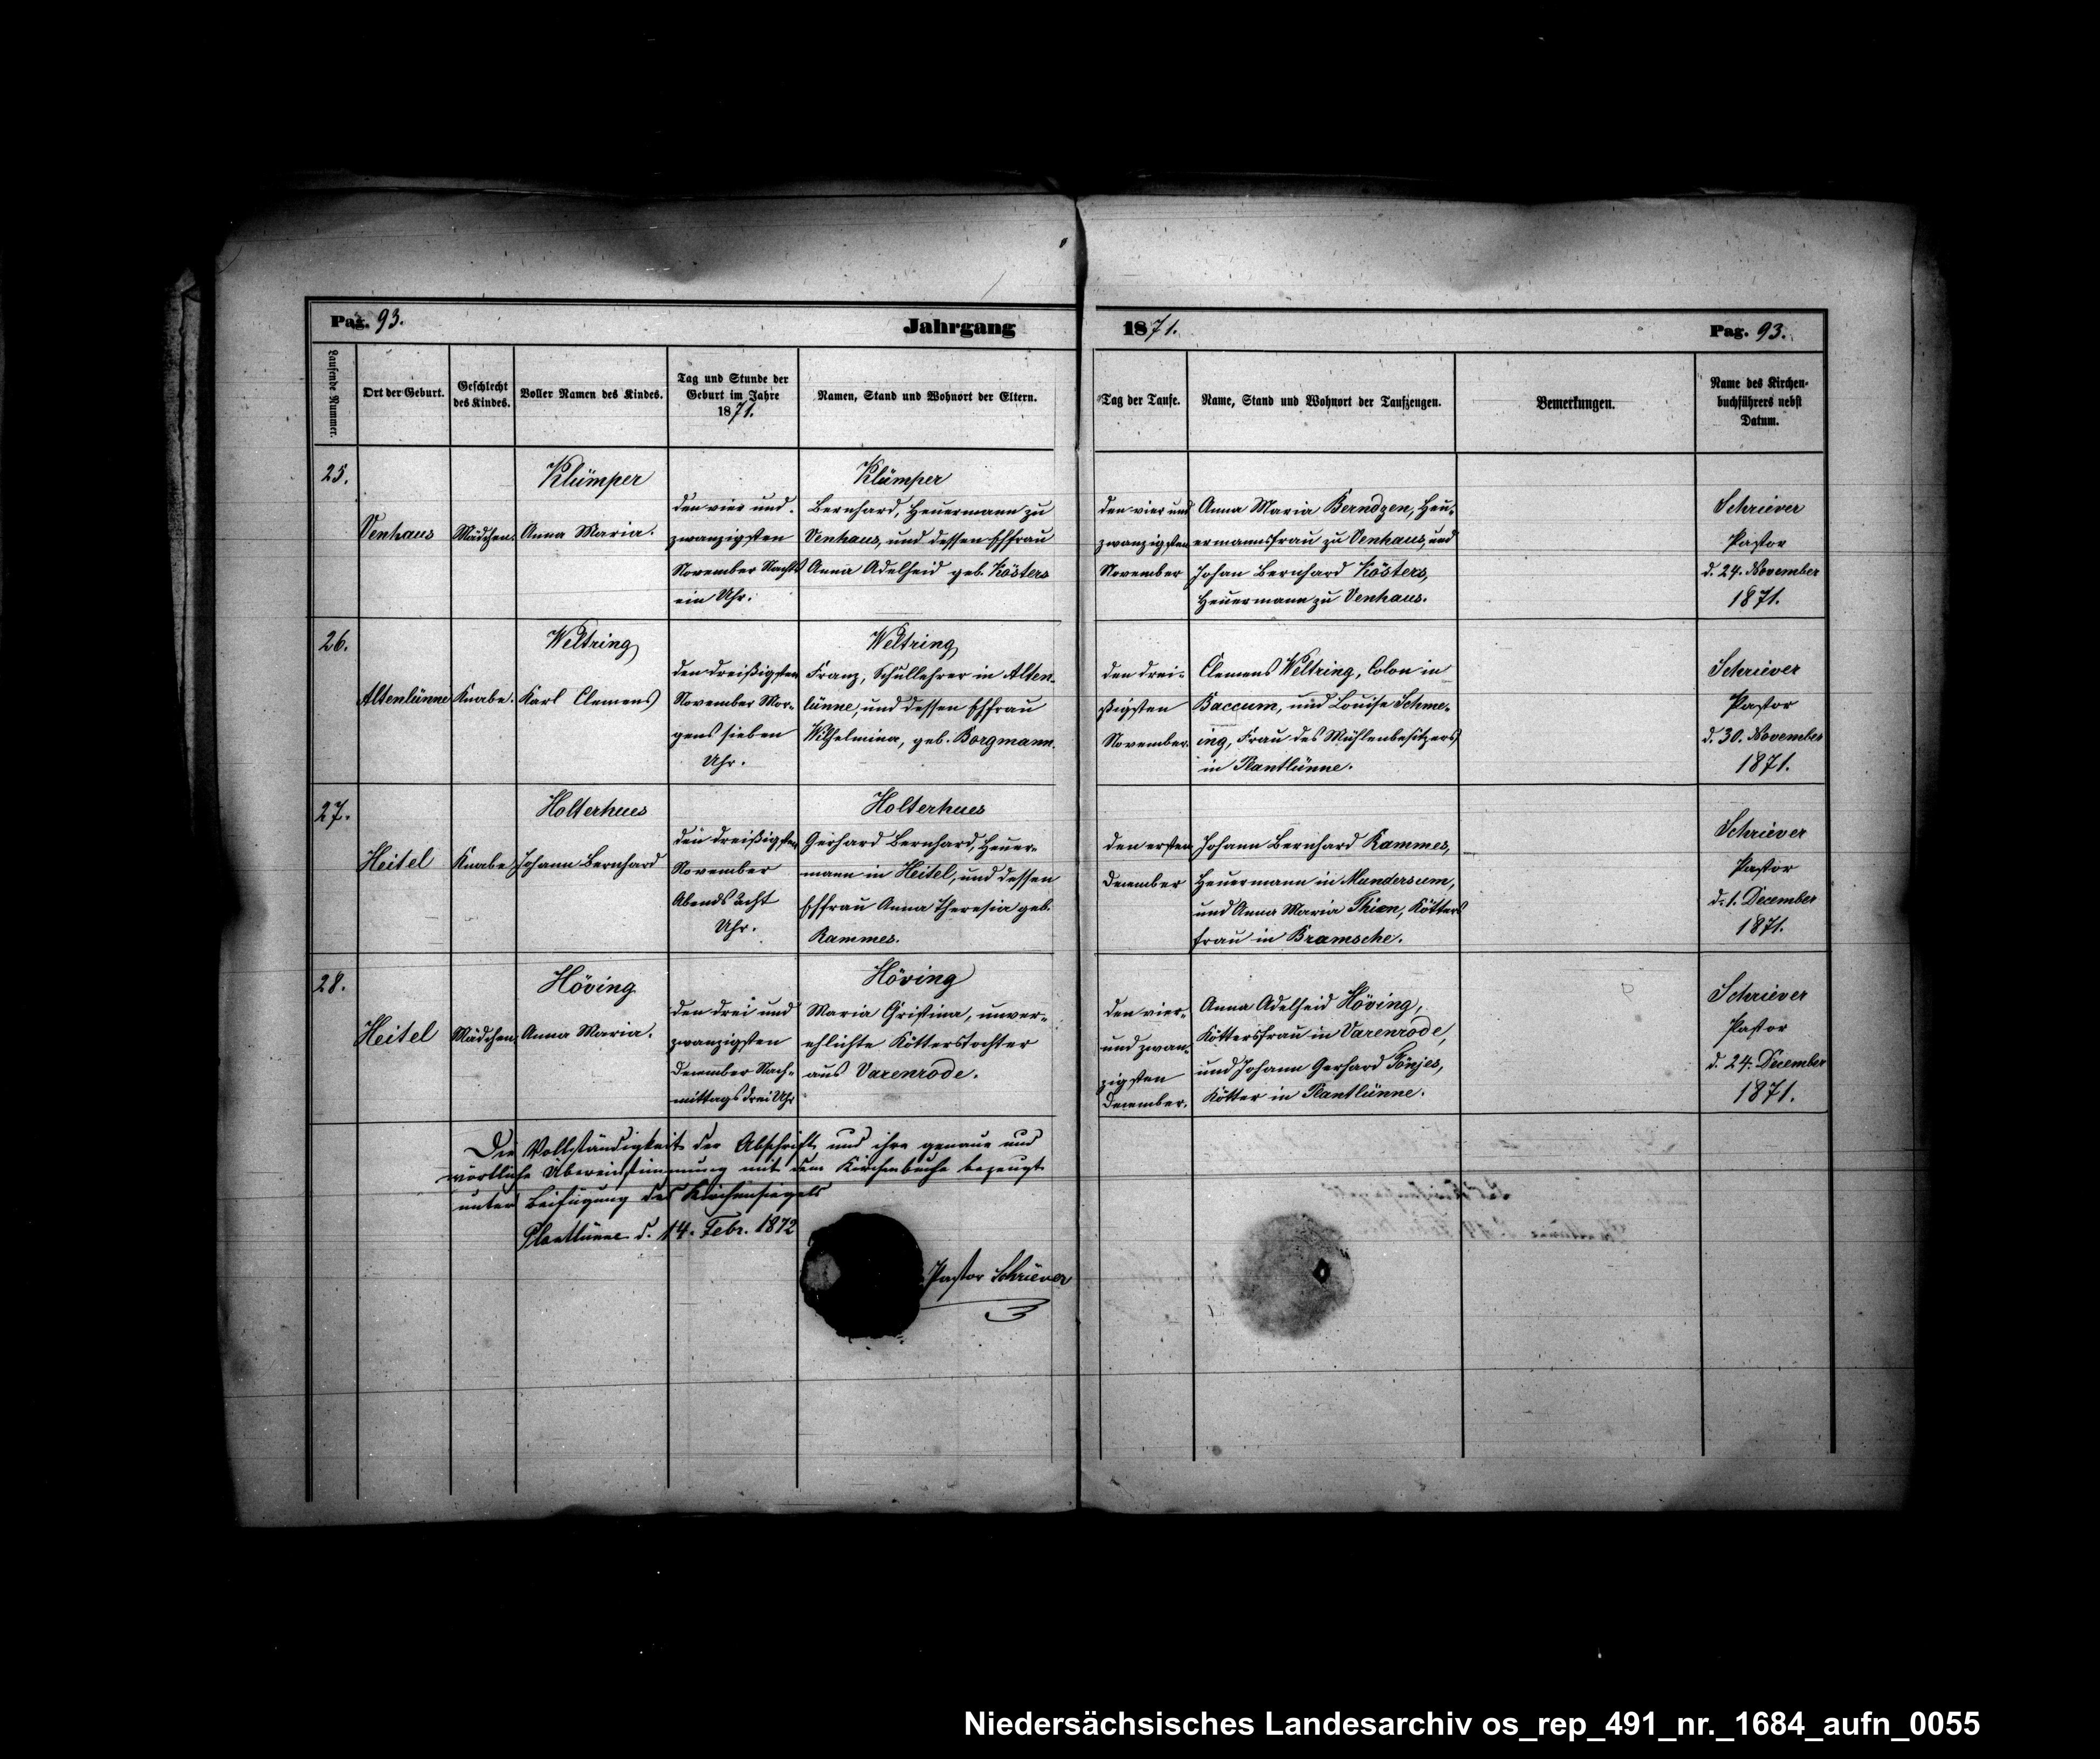 Pag. 93.
Jahrgang
1871.
Pag. 93.
Laufende Nummer.
Ort der Geburt.
Geschlecht
des Kindes.
Voller Namen des Kindes.
Tag und Stunde der
Geburt im Jahre
1871.
Namen, Stand und Wohnort der Eltern.
Tag der Taufe.
Name, Stand und Wohnort der Taufzeugen.
Bemerkungen.
Name des Kirchen-
buchführers nebst
Datum.
25.
Venhaus
Mädchen.
Klümper
Anna Maria.
den vier und
zwanzigsten
November Nachts
ein Uhr.
Klümper
Bernhard, Heuermann zu
Venhaus, und dessen Ehfrau
Anna Adelheid geb. Kösters
den vier und
zwanzigsten
November
Anna Maria Berndzen, Heu-
ermannsfrau zu Venhaus, und
Johan Bernhard Kösters,
Heuermann zu Venhaus.
Schriever
Pastor
d. 24. November
1871.
26.
Altenlünne
Knabe.
Weltring
Karl Clemens
den dreißigsten
November Mor-
gens sieben
Uhr.
Weltring
Franz, Schullehrer in Alten-
lünne, und dessen Ehfrau
Wilhelmina, geb. Borgmann.
den drei-
ßigsten
November.
Clemens Weltring, Colon in
Baccum, und Louise Schme-
ing, Frau des Mühlenbesitzers
in Plantlünne.
Schriever
Pastor
d. 30. November
1871.
27.
Heitel
Knabe
Holterhues
Johann Bernhard
den dreißigsten
November
Abends acht
Uhr.
Holterhues
Gerhard Bernhard, Heuer-
mann in Heitel, und dessen
Ehfrau Anna Theresia geb.
Rammes.
den ersten
December
Johann Bernhard Rammes,
Heuermann in Mundersum,
und Anna Maria Thien, Kötters
frau in Bramsche.
Schriever
Pastor
d. 1. December
1871.
28.
Heitel
Mädchen
Höving
Anna Maria.
den drei und
zwanzigsten
December Nach-
mittags drei Uhr
Höving
Maria Gristina, unver-
ehlichte Kötterstochter
aus Varenrode.
den vier-
und zwan-
zigsten
December.
Anna Adelheid Höving,
Köttersfrau in Varenrode,
und Johann Gerhard Tönjes,
Kötter in Plantlünne.
Schriever
Pastor
d. 24. December
1871.
Die Vollständigkeit der Abschrift und ihre genaue und
wörtliche Übereinstimmung mit dem Kirchenbuche bezeugt
unter Beifügung des Kirchensiegels
Plantlünne d. 14. Febr. 1872
Pastor Schriever
Niedersächsisches Landesarchiv os_rep_491_nr._1684_aufn_0055